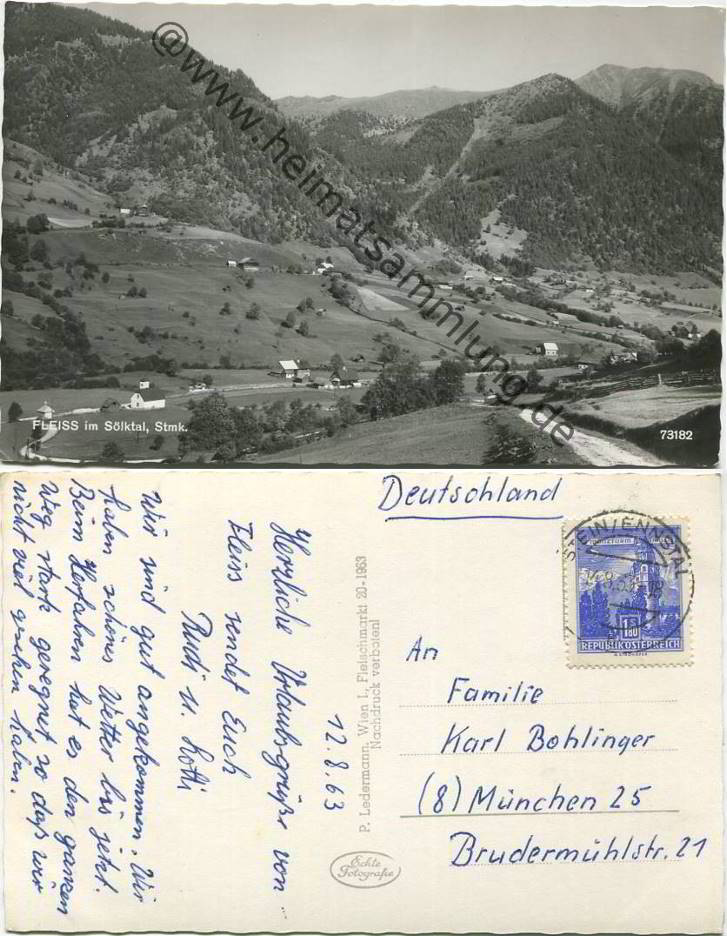 @www.heimatsammlung.de
FLEISS im Sölktal, Stmk.
73182
Deutschland
STEIN/ENNSTAL
1.80
REPUBLIK ÖSTERREICH
An
Familie
Karl Bohlinger
(8) München 25
Brudermühlstr. 21
P. Ledermann, Wien I., Fleischmarkt 20-1963
Nachdruck verboten!
Echte
Fotografie
12.8.63
Herzliche Urlaubsgrüße von
Fleiss sendet Euch
Rudi u. Lotti
Wir sind gut angekommen. Wir
haben schönes Wetter bis jetzt
Beim Herfahren hat es den ganzen
Weg stark geregnet so daß wir
nicht viel gesehen haben.